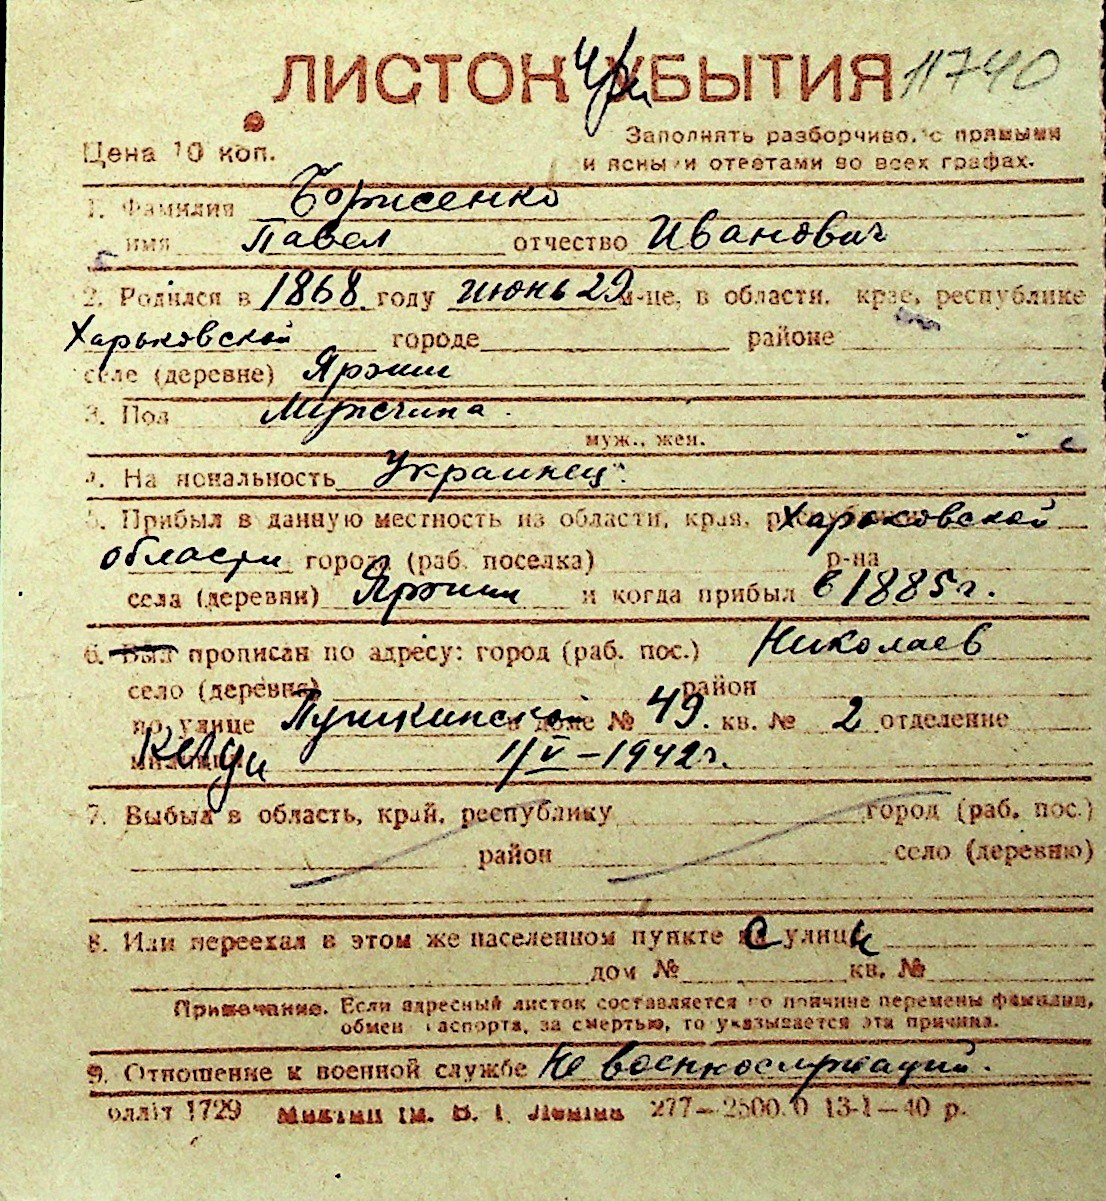 ЛИСТОК УБЫТИЯ 11740
Цена 10 коп.
Заполнять разборчиво, с прямыми
и ясными ответами во всех графах.
1. Фамилия Борисенко
имя Павел отчество Иванович
2. Родился в 1868 году июнь 29 м-це, в области, крае, республике
Харьковской городе районе
селе (деревне)
3. Пол Мужчина.
муж., жен.
4. Национальность Украинец.
5. Прибыл в данную местность из области, края, республики Харьковской
области города (раб. поселка) р-на
села (деревни) и когда прибыл в 1885 г.
6. Был прописан по адресу: город (раб. пос.) Николаев
село (деревня) район
по улице Пушкинской в доме № 49. кв. № 2 отделение
милиции 1/V–1942 г.
7. Выбыл в область, край, республику город (раб. пос.)
район село (деревню)
8. Или переехал в этом же населенном пункте с улицы
дом № кв. №
Примечание. Если адресный листок составляется по причине перемены фамилии,
обмен паспорта, за смертью, то указывается эта причина.
9. Отношение к военной службе Не военнослужащий.
1729 277—2500.0 13-1—40 р.